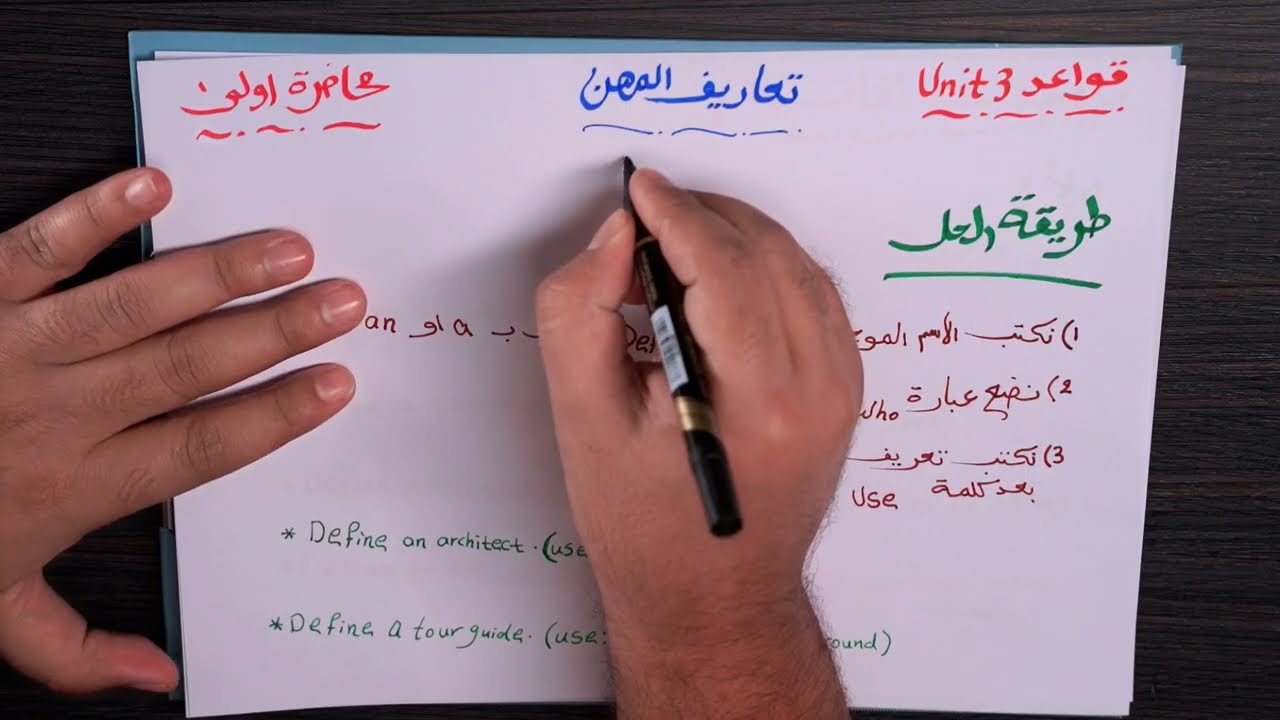 قواعد Unit 3
تعاريف المهن
محاضرة اولى
طريقة الحل
1) نكتب الأسم ب a او an
2) نضع عبارة who
3) نكتب تعريف
بعد كلمة use
* Define an architect. (use
* Define a tour guide. (use: